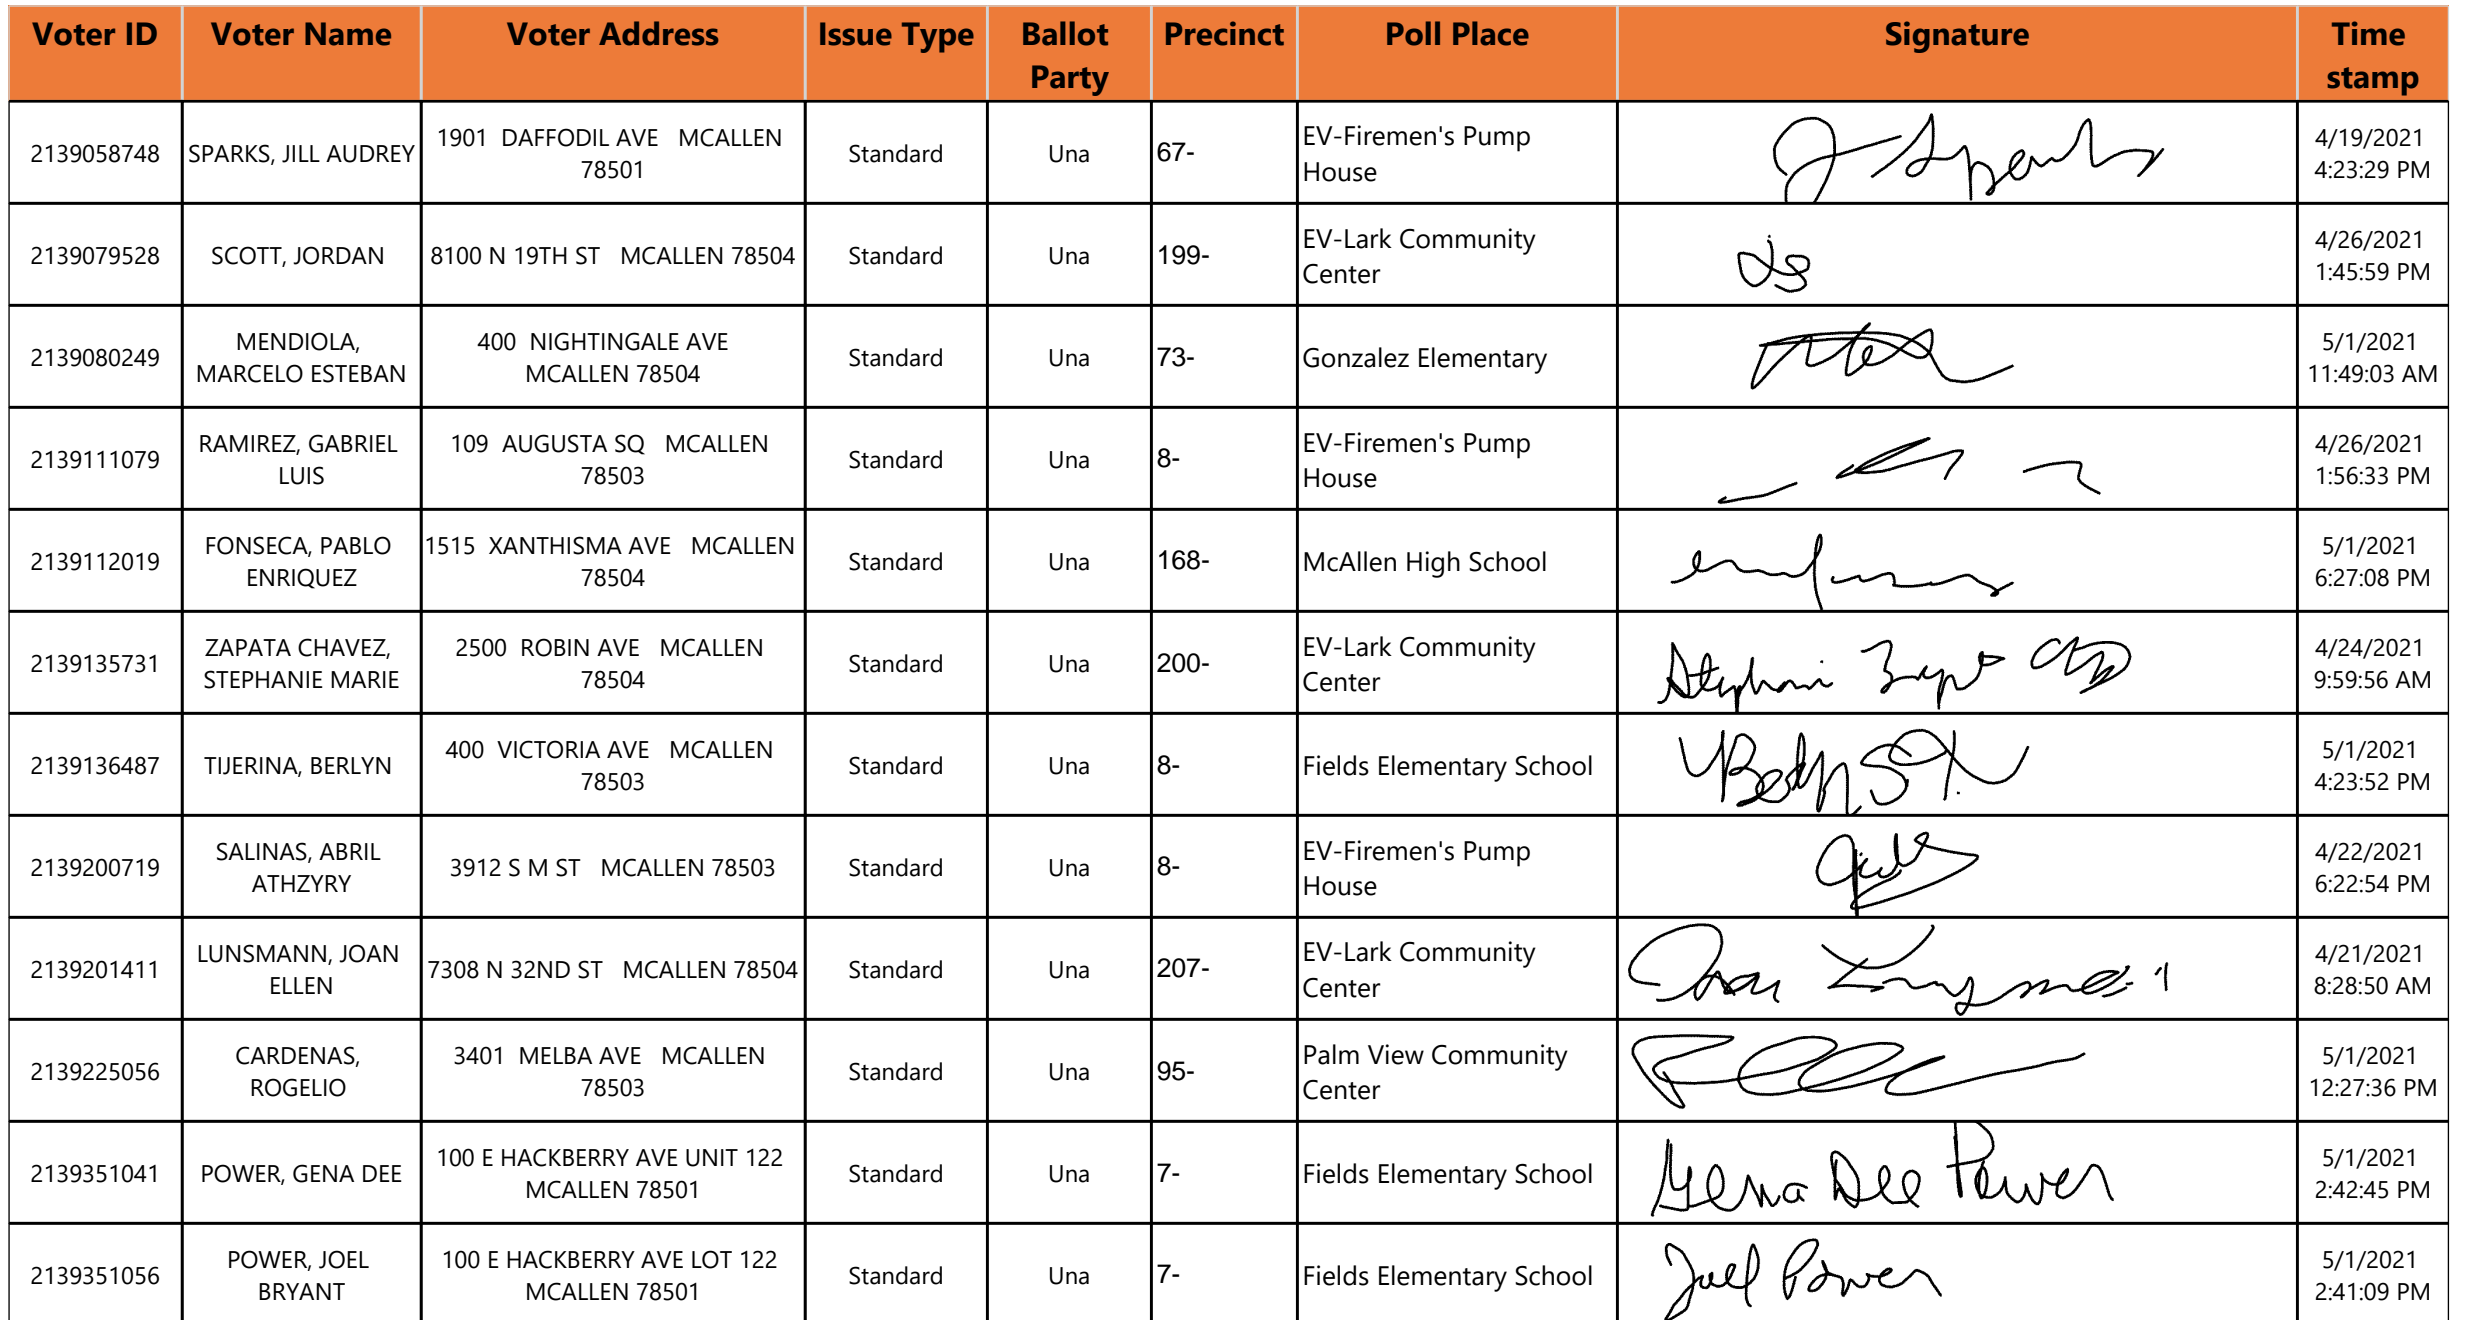 Voter ID Voter Name Voter Address Issue Type Ballot Party Precinct Poll Place Signature Time stamp
2139058748 SPARKS, JILL AUDREY 1901 DAFFODIL AVE MCALLEN 78501 Standard Una 67- EV-Firemen's Pump House J Sparks 4/19/2021 4:23:29 PM
2139079528 SCOTT, JORDAN 8100 N 19TH ST MCALLEN 78504 Standard Una 199- EV-Lark Community Center Js 4/26/2021 1:45:59 PM
2139080249 MENDIOLA, MARCELO ESTEBAN 400 NIGHTINGALE AVE MCALLEN 78504 Standard Una 73- Gonzalez Elementary 5/1/2021 11:49:03 AM
2139111079 RAMIREZ, GABRIEL LUIS 109 AUGUSTA SQ MCALLEN 78503 Standard Una 8- EV-Firemen's Pump House 4/26/2021 1:56:33 PM
2139112019 FONSECA, PABLO ENRIQUEZ 1515 XANTHISMA AVE MCALLEN 78504 Standard Una 168- McAllen High School 5/1/2021 6:27:08 PM
2139135731 ZAPATA CHAVEZ, STEPHANIE MARIE 2500 ROBIN AVE MCALLEN 78504 Standard Una 200- EV-Lark Community Center 4/24/2021 9:59:56 AM
2139136487 TIJERINA, BERLYN 400 VICTORIA AVE MCALLEN 78503 Standard Una 8- Fields Elementary School 5/1/2021 4:23:52 PM
2139200719 SALINAS, ABRIL ATHZYRY 3912 S M ST MCALLEN 78503 Standard Una 8- EV-Firemen's Pump House 4/22/2021 6:22:54 PM
2139201411 LUNSMANN, JOAN ELLEN 7308 N 32ND ST MCALLEN 78504 Standard Una 207- EV-Lark Community Center 4/21/2021 8:28:50 AM
2139225056 CARDENAS, ROGELIO 3401 MELBA AVE MCALLEN 78503 Standard Una 95- Palm View Community Center 5/1/2021 12:27:36 PM
2139351041 POWER, GENA DEE 100 E HACKBERRY AVE UNIT 122 MCALLEN 78501 Standard Una 7- Fields Elementary School Gena Dee Power 5/1/2021 2:42:45 PM
2139351056 POWER, JOEL BRYANT 100 E HACKBERRY AVE LOT 122 MCALLEN 78501 Standard Una 7- Fields Elementary School Joel Power 5/1/2021 2:41:09 PM